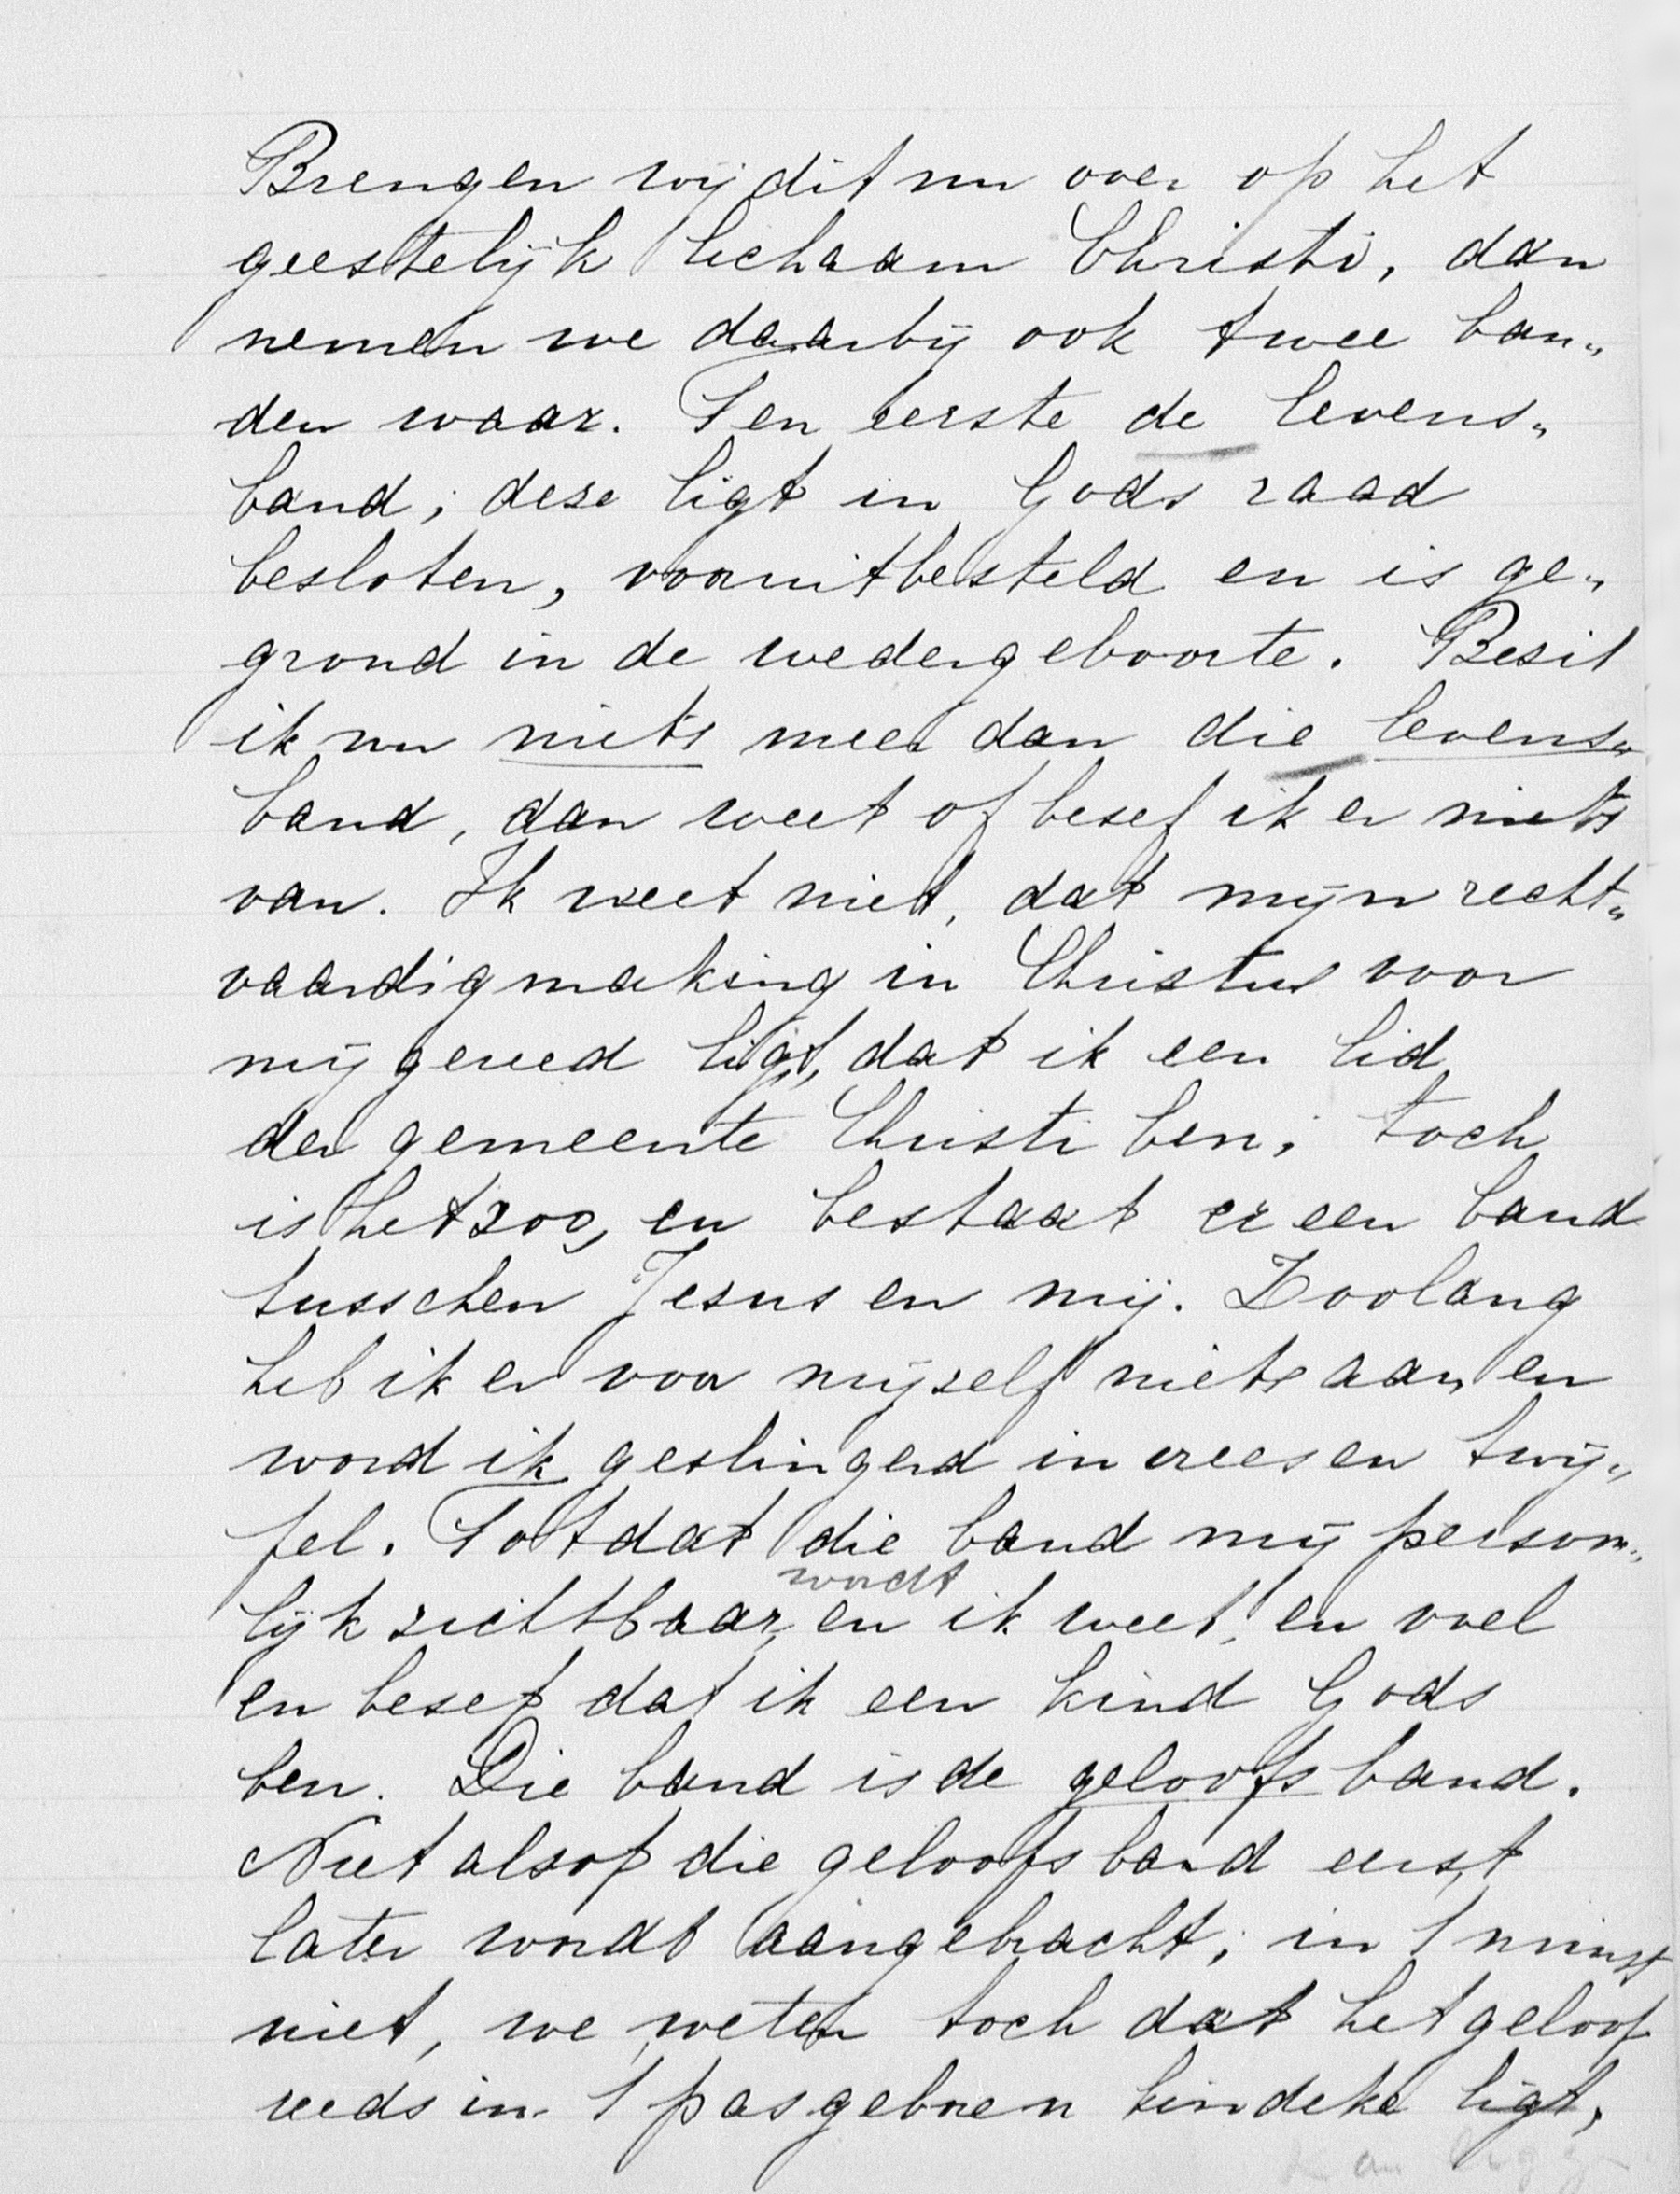 Brengen wij dit nu over op het
geestelijk lichaam Christi, dan
nemen we daarbij ook twee ban„
den waar. Ten eerste de levens„
band; deze ligt in Gods raad
besloten, vooruitbesteld en is ge„
grond in de wedergeboorte. Bezit
ik nu niets meer dan die levens„
band, dan weet of besef ik er niets
van. Ik weet niet, dat mijn recht„
vaardigmaking in Christus voor
mij gereed ligt, dat ik een lid
der gemeente Christi ben; toch
is het zoo, en bestaat er een band
tusschen Jezus en mij. Zoolang
heb ik er voor mijzelf niets aan, en
word ik geslingerd in vrees en twij„
fel. Totdat die band mij persoon„
wordt
lijk zichtbaar, en ik weet, en voel
en besef dat ik een kind Gods
ben. Die band is de geloofsband.
Niet alsof die geloofsband eerst
later wordt aangebracht; in 't minst
niet, we weten toch dat het geloof
reeds in 't pasgeboren kindeke ligt,